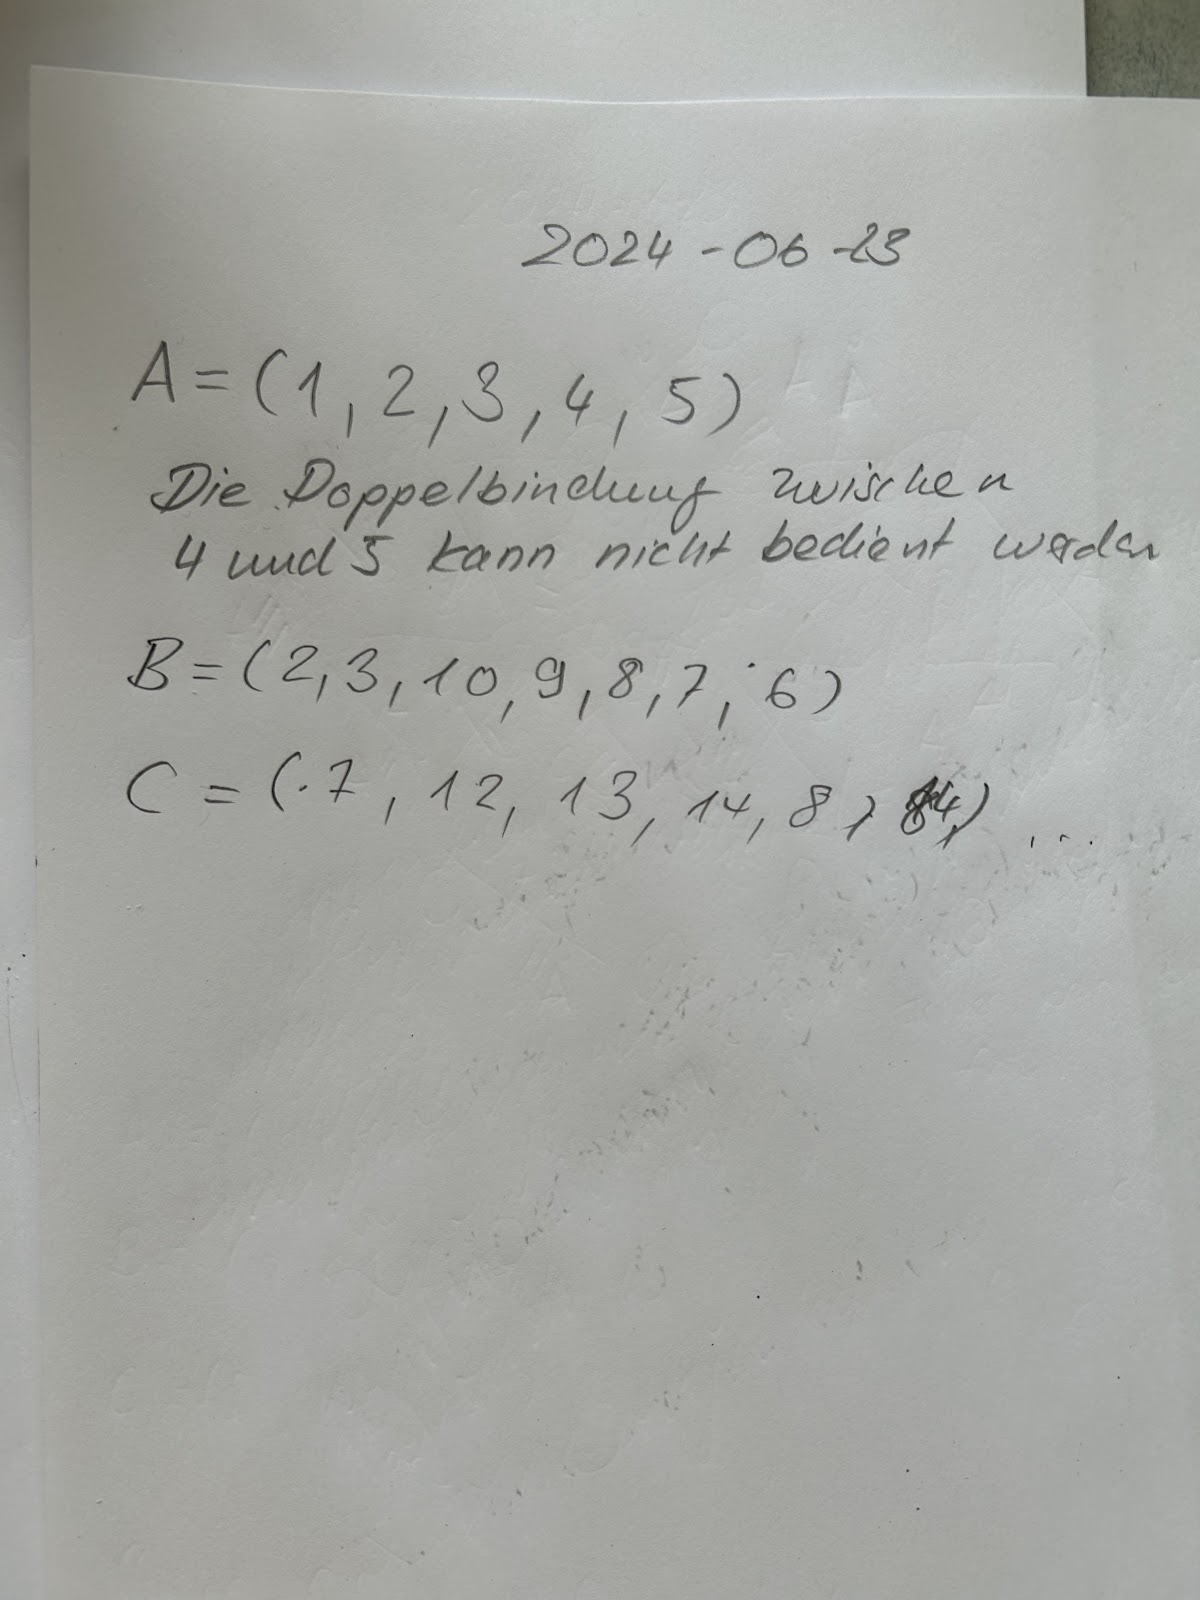 2024-06-23
A = (1, 2, 3, 4, 5)
Die Doppelbindung zwischen
4 und 5 kann nicht bedient werden
B = (2, 3, 10, 9, 8, 7, 6)
C = (7, 12, 13, 14, 8, ) ...